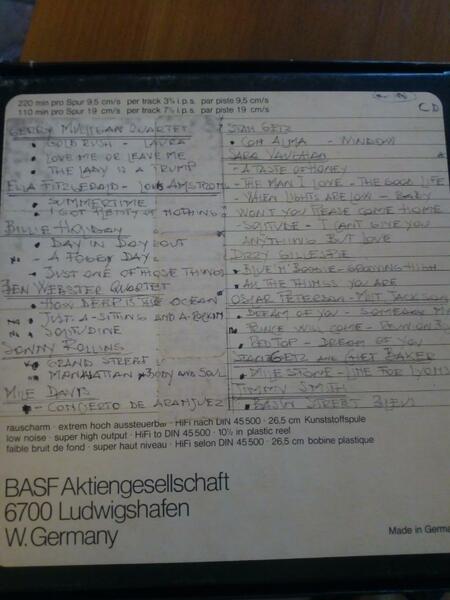 220 min pro Spur 9,5 cm/s per track 3¾ i.p.s. par piste 9,5 cm/s
110 min pro Spur 19 cm/s per track 7½ i.p.s. par piste 19 cm/s
CD
GERRY MULLIGAN QUARTET
• GOLD RUSH - LAURA
• LOVE ME OR LEAVE ME
• THE LADY IS A TRUMP
ELLA FITZGERALD - LOUIS AMSTRONG
• SUMMERTIME
• I GOT PLENTY OF NOTHING
BILLIE HOLIDAY
• DAY IN DAY OUT
• A FOGGY DAY
• JUST ONE OF THOSE THINGS
BEN WEBSTER QUARTET
• HOW DEEP IS THE OCEAN
• JUST A-SITTING AND A-ROCKIN
• SOLITUDINE
SONNY ROLLINS
• GRAND STREET
• MANHATTAN • BODY AND SOUL
MILE DAVIS
• CONCIERTO DE ARANJUEZ
STAN GETZ
• CON ALMA - WINDOW
SARA VAUGHAN
- A TASTE OF HONEY
- THE MAN I LOVE - THE GOOD LIFE
- WHEN LIGHTS ARE LOW - BABY
WON'T YOU PLEASE COME HOME
- SOLITUDE - I CANT GIVE YOU
ANYTHING BUT LOVE
DIZZY GILLESPIE
• BLUE N' BOOGIE - GROOVING HIGH
• ALL THE THINGS YOU ARE
OSCAR PETERSON - MILT JACKSON
• DREAM OF YOU - SOMEDAY MY
PRINCE WILL COME - REUNION B
• RED TOP - DREAM OF YOU
STAN GETZ AND CHET BAKER
• MILESTONE - LINE FOR LYONS
JIMMY SMITH
• BASIN STREET BLUES
rauscharm · extrem hoch aussteuerbar · HiFi nach DIN 45 500 · 26,5 cm Kunststoffspule
low noise · super high output · HiFi to DIN 45 500 · 10½ in plastic reel
faible bruit de fond · super haut niveau · HiFi selon DIN 45 500 · 26,5 cm bobine plastique
BASF Aktiengesellschaft
6700 Ludwigshafen
W. Germany
Made in Germa